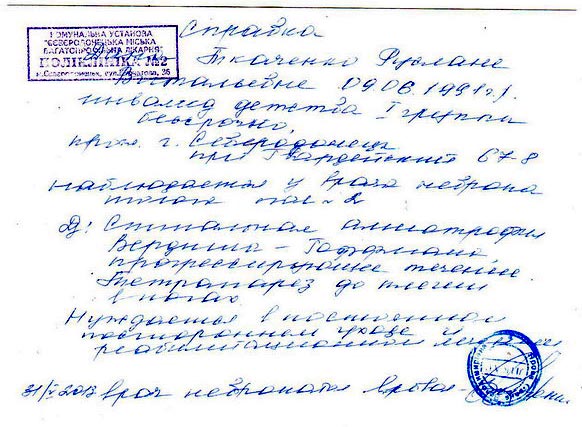 КОМУНАЛЬНА УСТАНОВА
"СЄВЄРОДОНЕЦЬКА МІСЬКА
БАГАТОПРОФІЛЬНА ЛІКАРНЯ"
ПОЛІКЛІНІКА №2
Справка
Ткаченко Руслане
Витальевне 09.06.1991 г.р.
инвалид детства I группы
бессрочно,
прож. г. Северодонецк
пр. Гвардейский 67-8
Наблюдается у врача невропа
толога пол-ки №2
Д: Спинальная амиотрофия
Вердинга – Гоффмана,
прогрессирующее течение
Тетрапарез до плегии
в ногах.
Нуждается в постоянном
постороннем уходе и
реабилитационном лечении
2013 врач невропатолог